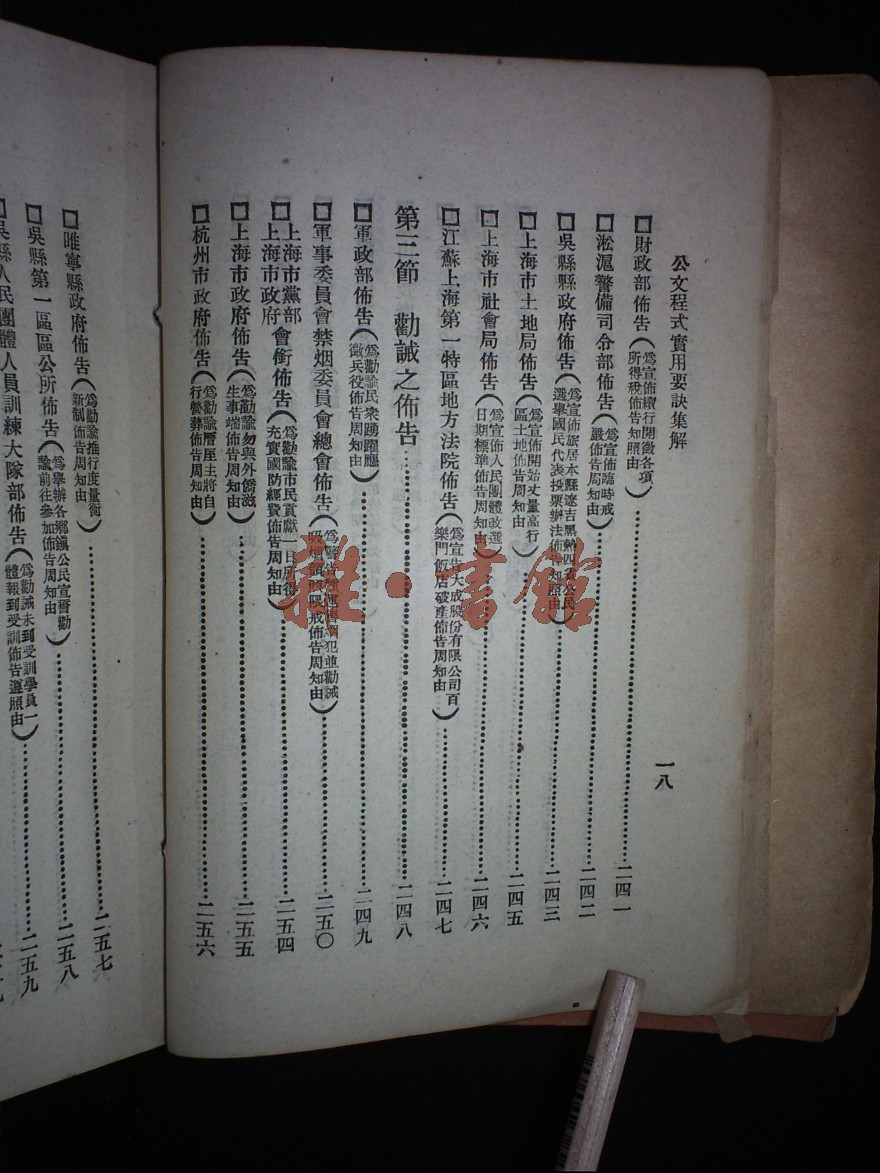 公文程式實用要訣集解
一八
□財政部佈告（爲宣佈續行開徵各項所得稅佈告知照由）……二四一
□淞滬警備司令部佈告（爲宣佈臨時戒嚴佈告周知由）……二四二
□吳縣縣政府佈告（爲宣佈旅居本縣遼吉黑熱四省公民選舉國民代表投票辦法佈告知照由）……二四三
□上海市土地局佈告（爲宣佈開始丈量高行區土地佈告周知由）……二四五
□上海市社會局佈告（爲宣佈人民團體改選日期標準佈告周知由）……二四六
□江蘇上海第一特區地方法院佈告（爲宣告大成股份有限公司百樂門飯店破產佈告周知由）……二四七
第三節　勸誡之佈告……二四八
□軍政部佈告（爲勸諭民衆踴躍應徵兵役佈告周知由）……二四九
□軍事委員會禁烟委員會總會佈告（爲警告犯並勸誡吸烟限戒佈告周知由）……二五〇
□上海市黨部上海市政府會銜佈告（爲勸諭市民貢獻一日所得充實國防經費佈告周知由）……二五四
□上海市政府佈告（爲勸諭勿與外僑滋生事端佈告周知由）……二五五
□杭州市政府佈告（爲勸諭厝主將自行營葬佈告周知由）……二五六
□睢寧縣政府佈告（爲勸諭推行度量衡新制佈告周知由）……二五七
□吳縣第一區區公所佈告（爲舉辦各鄉鎮公民宣誓勸諭前往參加佈告周知由）……二五八
□吳縣人民團體人員訓練大隊部佈告（爲勸誡未到受訓學員一體報到受訓佈告遵照由）……二五九
雜·書館